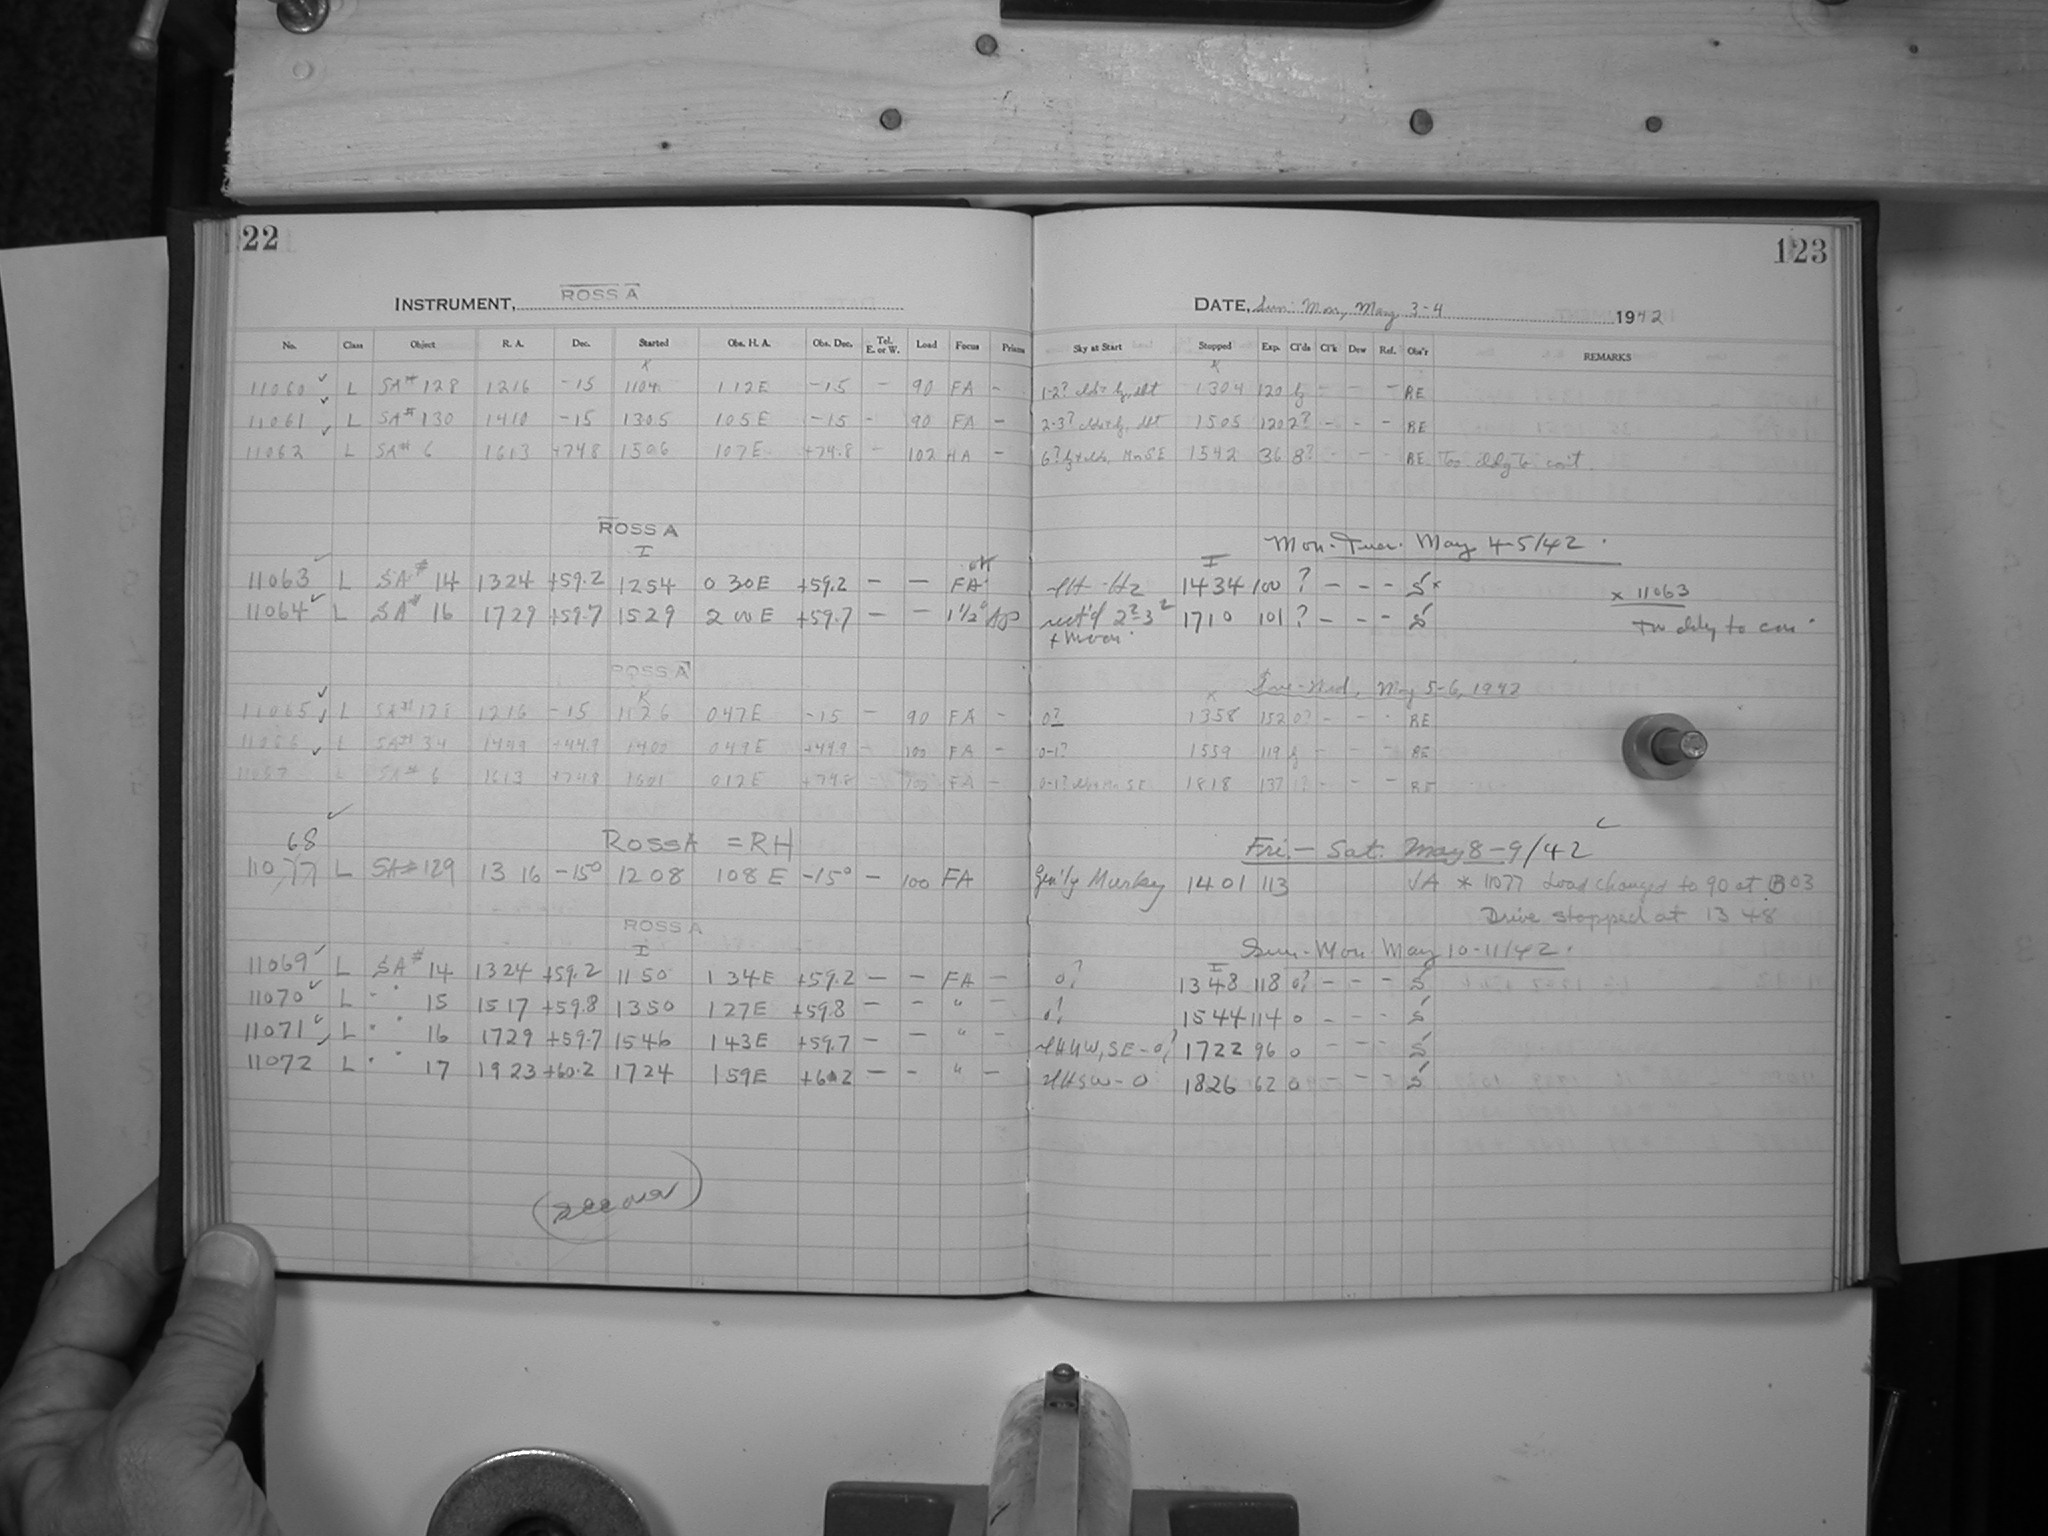 22
123
INSTRUMENT, ROSS A
DATE, Sun. Mon, May 3-4 1942
No. Class Object R. A. Dec. Started Obs. H. A. Obs. Dec. Tel. E. or W. Load Focus Prism Sky at Start Stopped Exp. Cl'ds Cl'k Dew Ref. Obs'r REMARKS
11060 ✓ L SA# 128 1216 -15 1104 112E -15 - 90 FA - 1304 120 - - - RE
11061 ✓ L SA# 130 1410 -15 1305 105E -15 - 90 FA - 1505 120 2? - - - RE
11062 ✓ L SA# 6 1613 +74.8 1506 107E +74.8 - 102 FA - 1542 36 8? - - - RE Too cldy to con't.
ROSS A
Mon. Tues. May 4-5/42.
11063 ✓ L SA# 14 1324 +59.2 1254 0 30E +59.2 - - FA 1434 100 ? - - - S × × 11063
11064 ✓ L SA# 16 1729 +59.7 1529 2 00E +59.7 - - 1½° 1710 101 ? - - - S
+ moon
ROSS A
Tue-Wed, May 5-6, 1942
11065 ✓ L SA# 128 1216 -15 1126 047E -15 - 90 FA - 0? 1358 152 0? - - - RE
11066 ✓ L SA# 34 +44.9 1400 049E +44.9 - 100 FA - 0-1? 1559 119 - - - RE
11067 L SA# 6 1613 +74.8 1601 012E +74.8 - FA - 1818 137 - - - RE
68 ✓
ROSS A = RH
Fri. - Sat. May 8-9/42
11077 L SA# 129 13 16 -15° 1208 108 E -15° - 100 FA Gen'ly Murky 1401 113 VA * 11077 Load changed to 90 at 1303
Drive stopped at 13 48
ROSS A
Sun-Mon. May 10-11/42.
11069 ✓ L SA# 14 1324 +59.2 1150 1 34E +59.2 - - FA - 0? 1348 118 0? - - - S
11070 ✓ L " " 15 1517 +59.8 1350 127E +59.8 - - " - 1544 114 0 - - - S
11071 ✓ L " " 16 1729 +59.7 1546 143E +59.7 - - " 1722 96 0 - - - S
11072 ✓ L " " 17 1923 +60.2 1724 159E +60.2 - - " - 1826 62 0 - - - S
(see over)